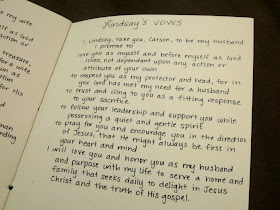 my wife
self as God
action or
treasure,
or a wife
own as
God
Lindsay's VOWS
I, Lindsay, take you, Carson, to be my husband.
I promise to
love you as myself and before myself as God
loves, not dependent upon any action or
attribute of your own
to respect you as my protector and head, for in
you God has met my need for a husband
to trust and cling to you as a fitting response
to your sacrifice
to follow your leadership and support you while
possessing a quiet and gentle spirit
to pray for you and encourage you in the direction
of Jesus, that He might always be first in
your heart and mind
I will love you and honor you as my husband
and purpose with my life to serve a home and
family that seeks daily to delight in Jesus
Christ and the truth of His gospel.